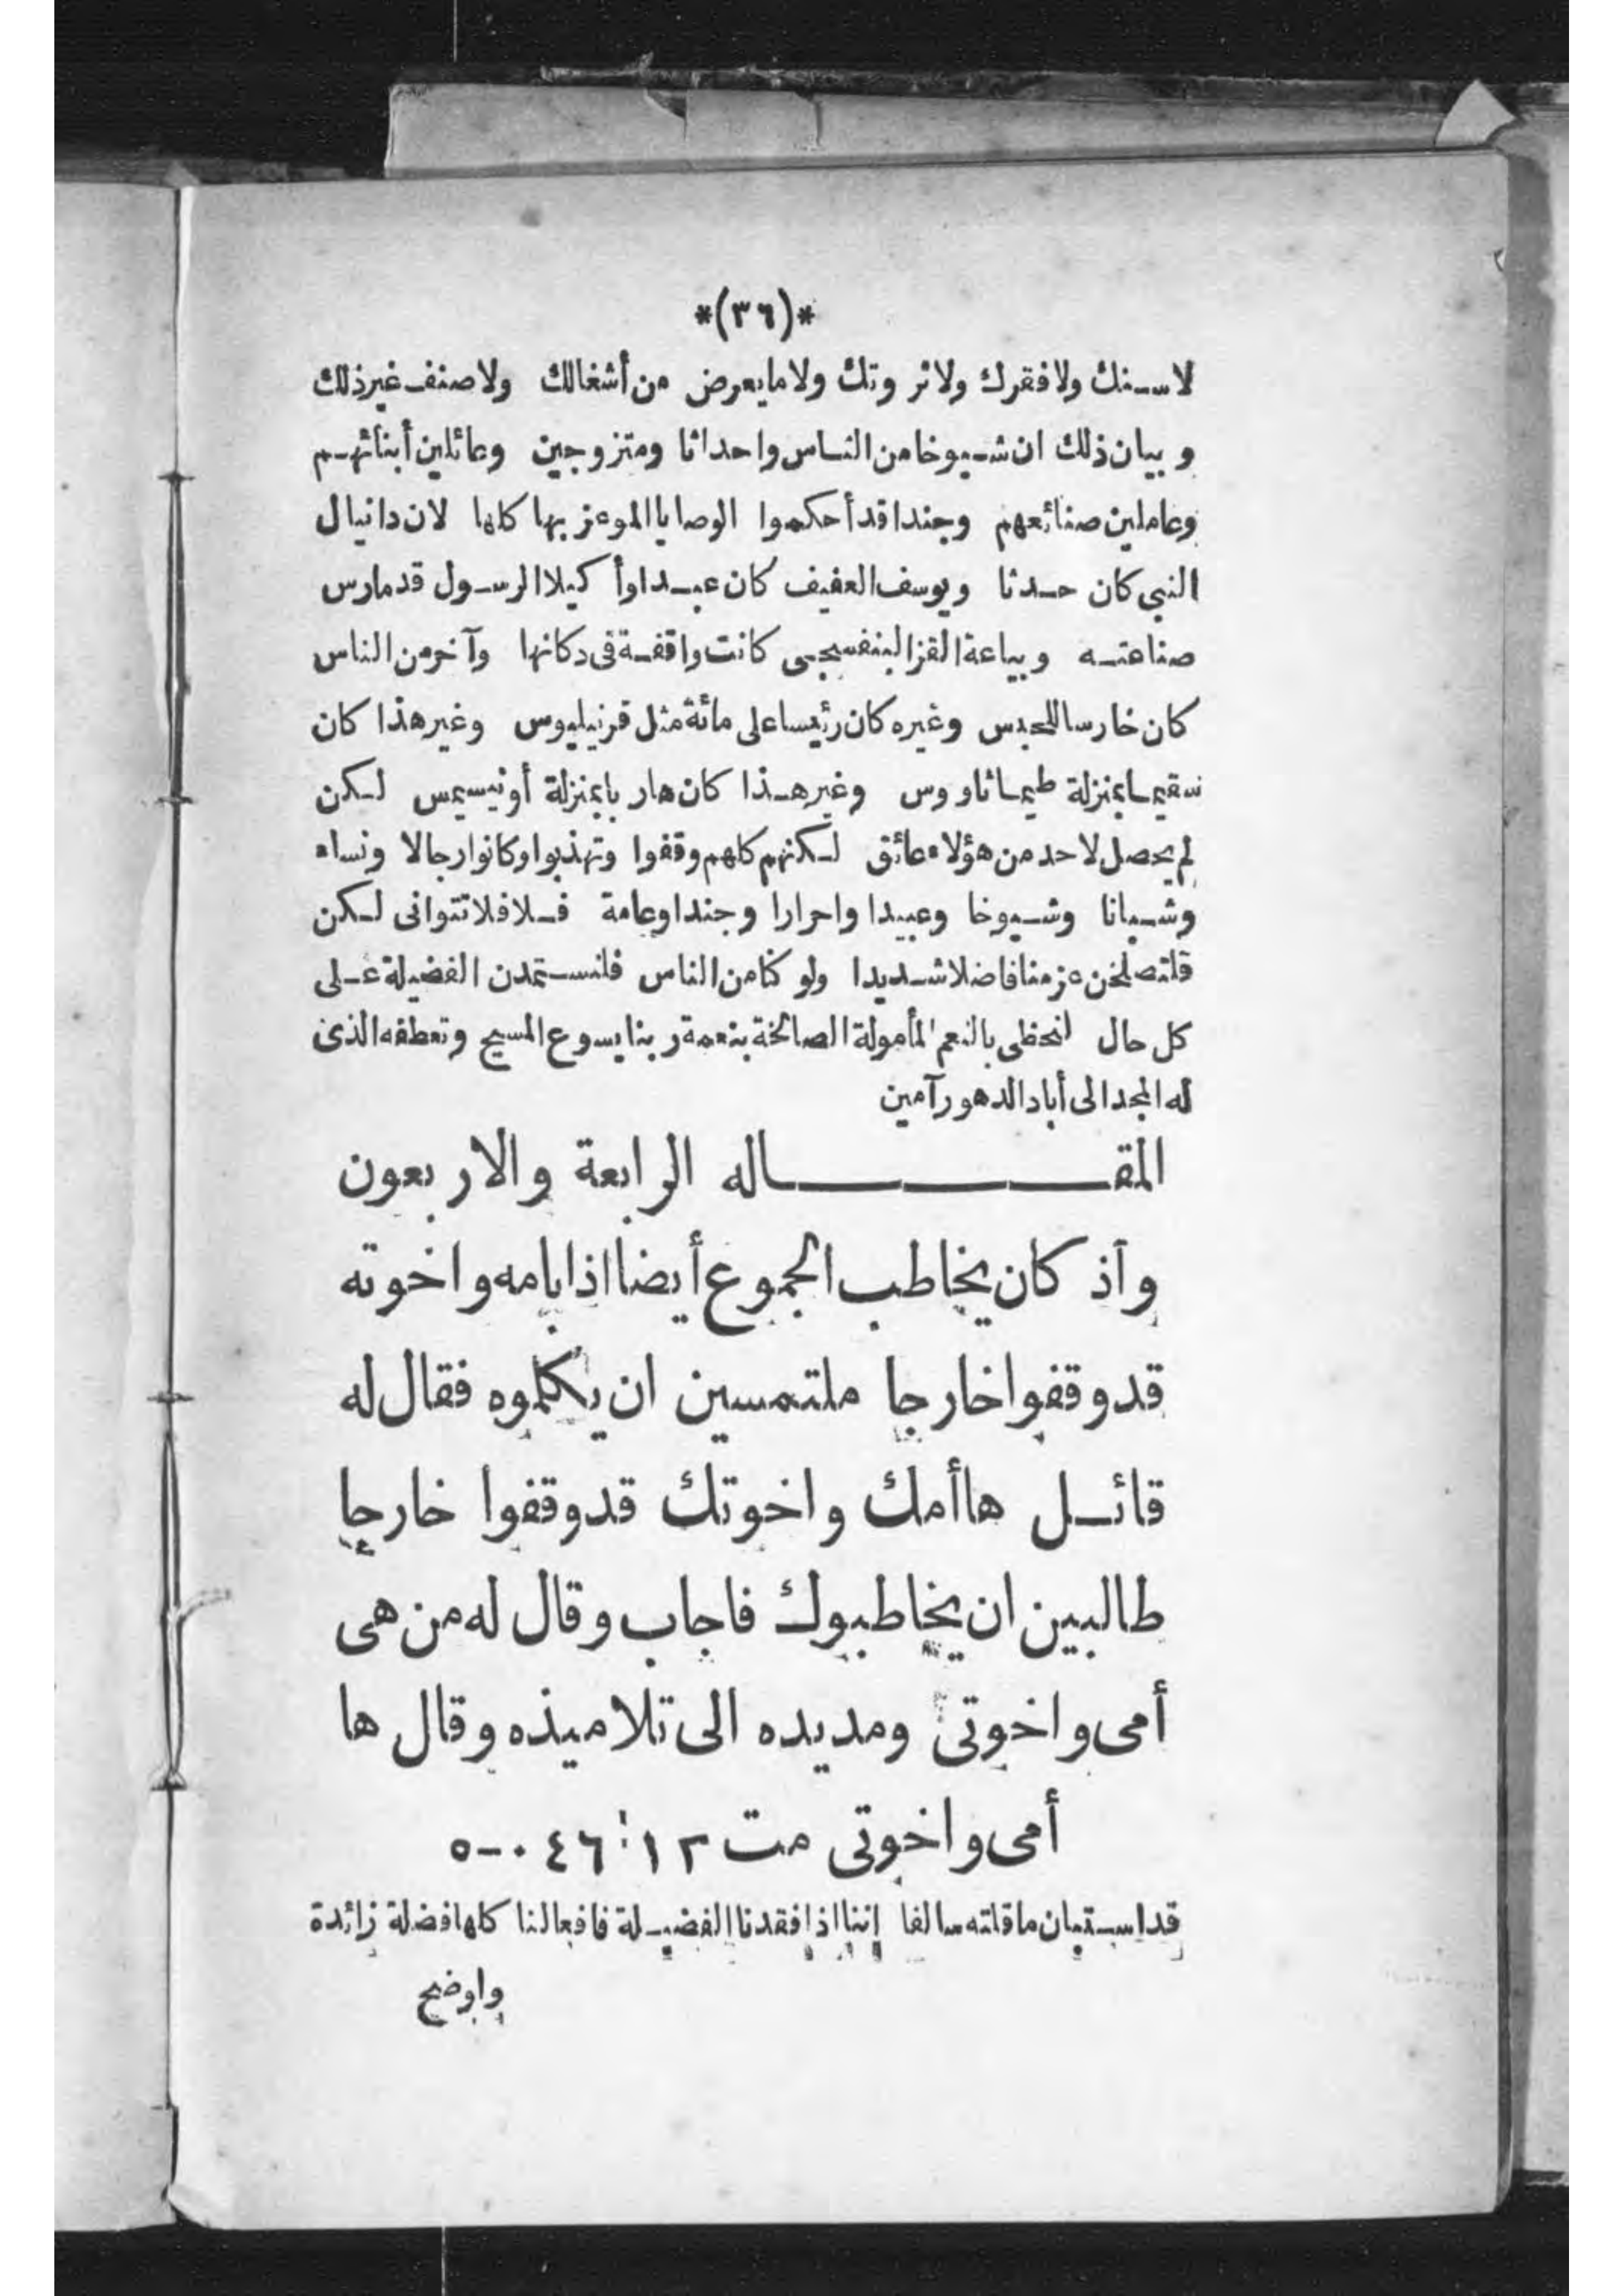 *(٣٦)*
لا سنك ولا فقرك ولا ثروتك ولا ما يعرض من أشغالك ولا صنف غير ذلك
وبيان ذلك ان شيوخا من الناس واحداثا ومتزوجين وعائلين أبنائهم
وعاملين صنائعهم وجندا قد أحكموا الوصايا الموعز بها كلها لان دانيال
النبي كان حدثا ويوسف العفيف كان عبدا وأ كيلا الرسول قد مارس
صناعته وبياعة القز البنفسجى كانت واقفة فى دكانها وآخر من الناس
كان خارسا للحبس وغيره كان رئيسا على مائة مثل قرنيليوس وغير هذا كان
سقيما بمنزلة طيماثاووس وغير هذا كان هاربا بمنزلة أونيسيمس لكن
لم يحصل لاحد من هؤلاء عائق لكنهم كلهم وقفوا وتهذبوا وكانوا رجالا ونساء
وشبانا وشيوخا وعبيدا واحرارا وجندا وعامة فلا فلا تتوانى لكن
فلتصلحن عزمنا فاضلا شديدا ولو كنا من الناس فلنستمدن الفضيلة على
كل حال لنحظى بالنعم المأمولة الصالحة بنعمة ربنا يسوع المسيح وتعطفه الذى
له المجد الى أباد الدهور آمين
المقـــاله الرابعة والاربعون
وآذ كان يخاطب الجموع أيضا اذا بامه واخوته
قد وقفوا خارجا ملتمسين ان يكلموه فقال له
قائل ها أمك واخوتك قد وقفوا خارجا
طالبين ان يخاطبوك فاجاب وقال له من هى
أمى واخوتى ومد يده الى تلاميذه وقال ها
أمى واخوتى مت ١٢ : ٤٦ - ٥٠
قد استبان ما قلته سالفا إننا اذا فقدنا الفضيلة فافعالنا كلها فضلة زائدة
واوضح